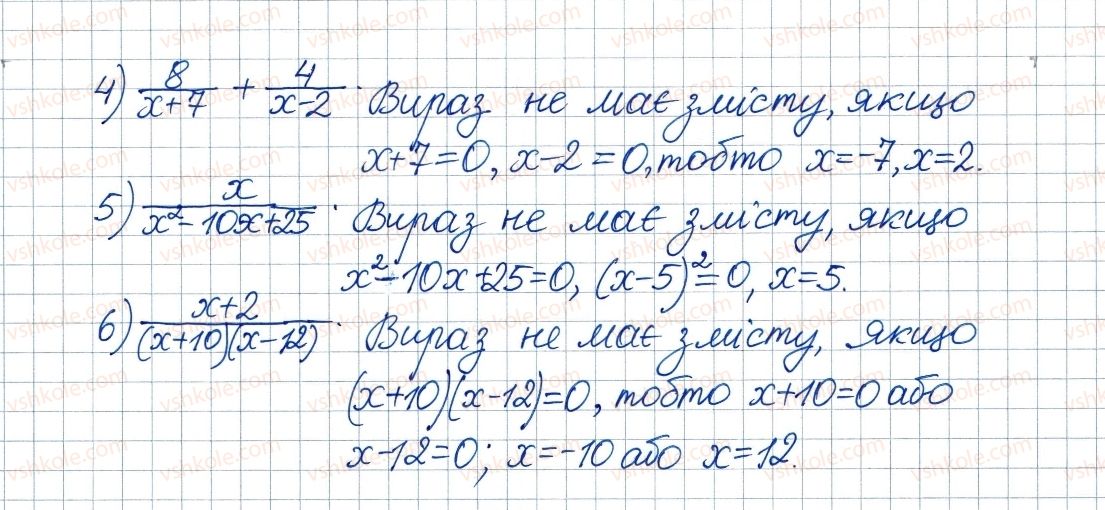 4) 8/(x+7) + 4/(x-2). Вираз не має змісту, якщо
x+7=0, x-2=0, тобто x=-7, x=2.
5) x/(x²-10x+25). Вираз не має змісту, якщо
x²-10x+25=0, (x-5)²=0, x=5.
6) (x+2)/((x+10)(x-12)). Вираз не має змісту, якщо
(x+10)(x-12)=0, тобто x+10=0 або
x-12=0; x=-10 або x=12.
vshkole.com